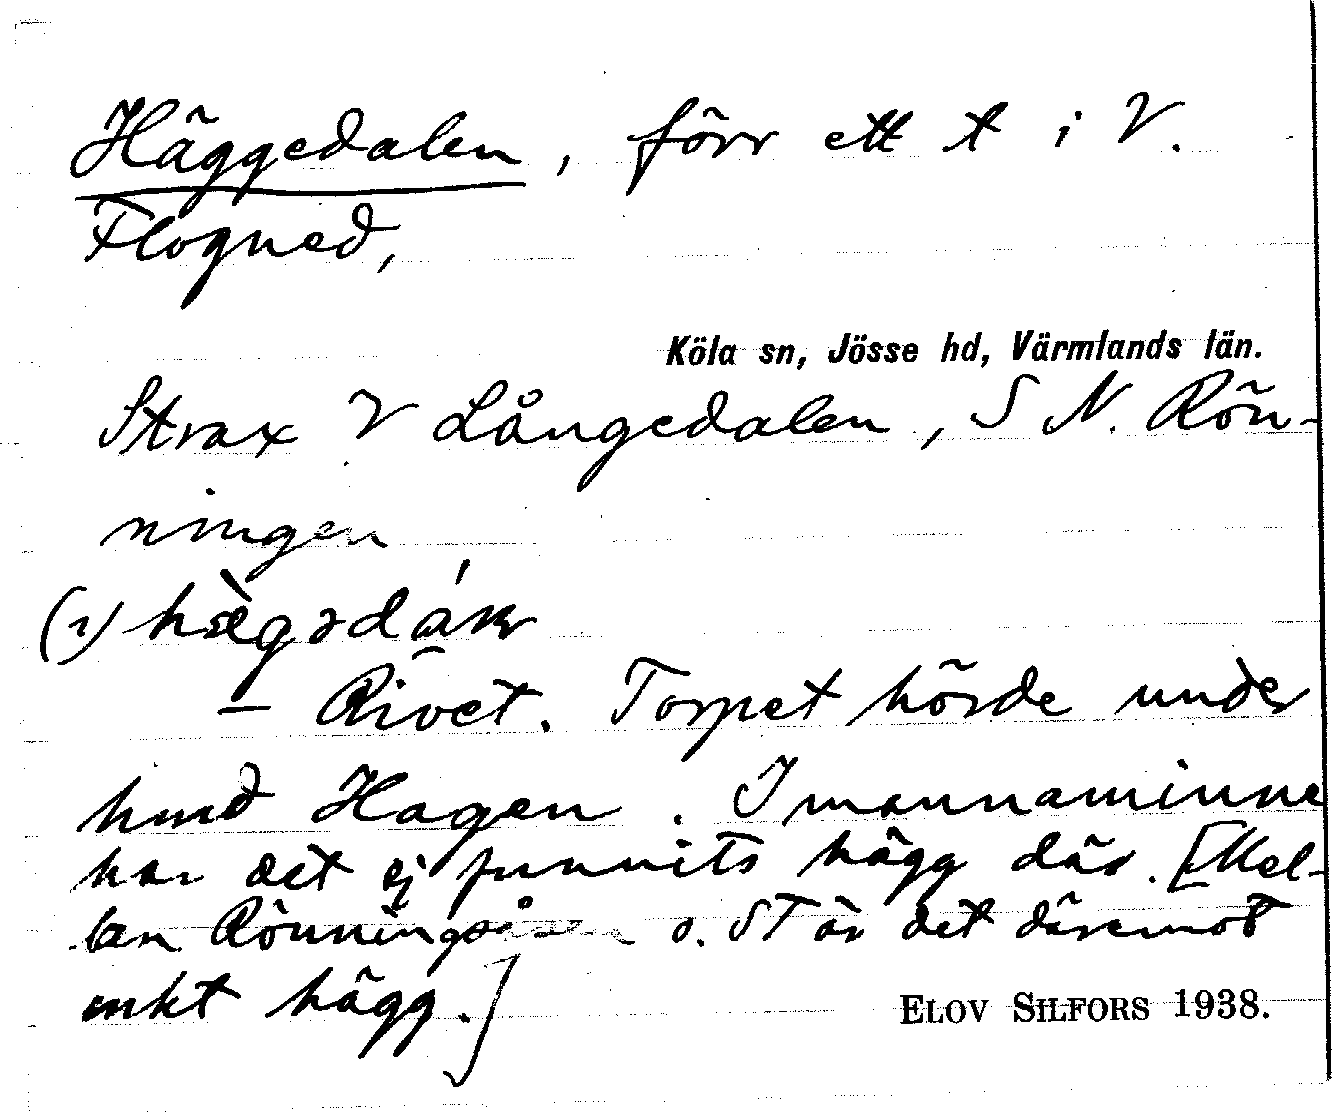 Häggedalen, förr ett t i V.
Flogned,
Köla sn, Jösse hd, Värmlands län.
Strax V Långedalen, S N. Rön-
ningen
(1) hæ̀gədáɴ
– Rivet. Torpet hörde under
hmd Hagen. I mannaminne
har det ej funnits hägg där. [Mel-
lan Rönningsåsen o. ST är det däremot
mkt hägg.]
ELOV SILFORS 1938.